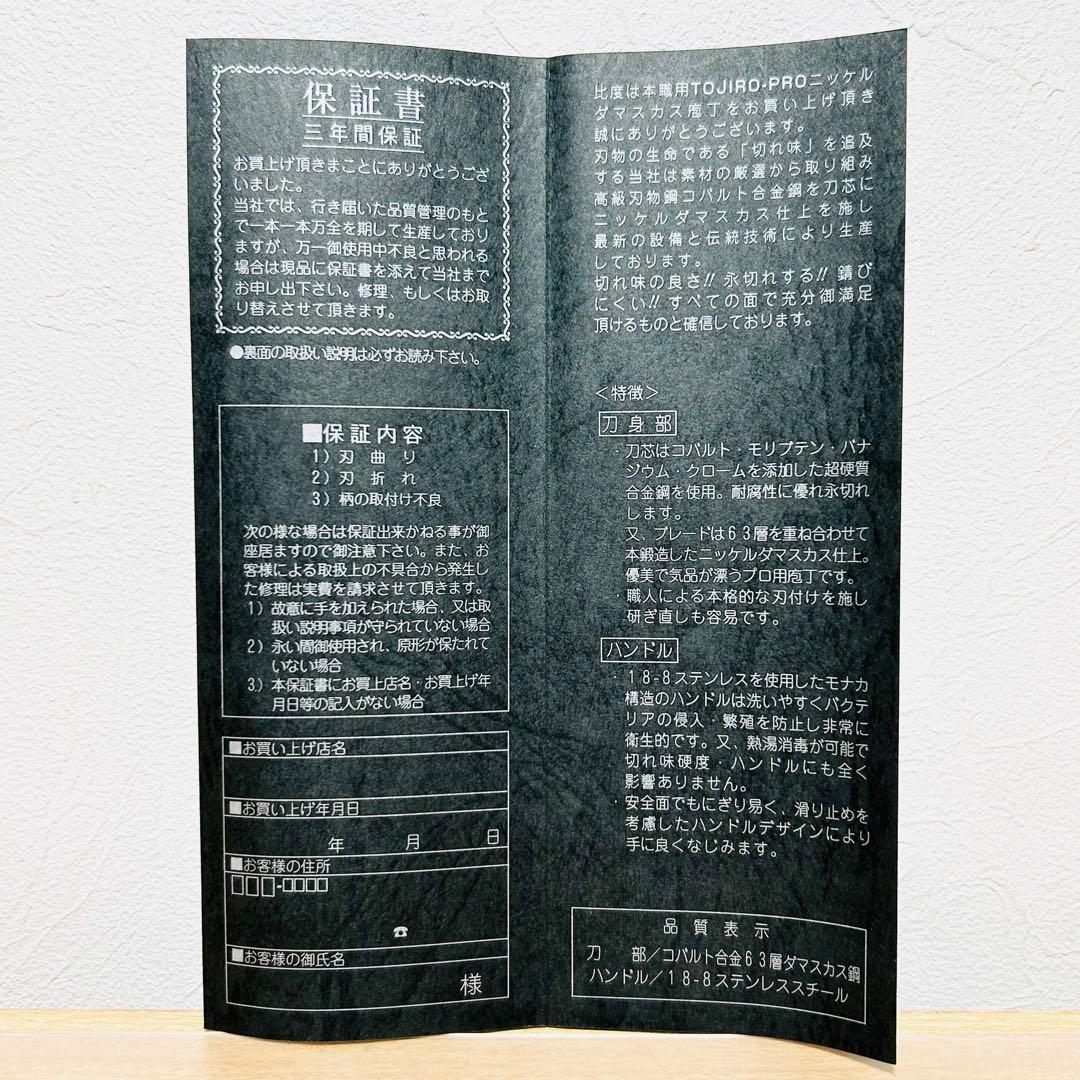 保証書
三年間保証
お買上げ頂きまことにありがとうござ
いました。
当社では、行き届いた品質管理のもと
で一本一本万全を期して生産しており
ますが、万一御使用中不良と思われる
場合は現品に保証書を添えて当社まで
お申し出下さい。修理、もしくはお取
り替えさせて頂きます。
●裏面の取扱い説明は必ずお読み下さい。
■保証内容
1）刃曲り
2）刃折れ
3）柄の取付け不良
次の様な場合は保証出来かねる事が御
座居ますので御注意下さい。また、お
客様による取扱上の不具合から発生し
た修理は実費を請求させて頂きます。
1）故意に手を加えられた場合、又は取
扱い説明事項が守られていない場合
2）永い間御使用され、原形が保たれて
いない場合
3）本保証書にお買上店名・お買上げ年
月日等の記入がない場合
■お買い上げ店名
■お買い上げ年月日
年　月　日
■お客様の住所
□□□-□□□□
☎
■お客様の御氏名
様
比度は本職用TOJIRO-PROニッケル
ダマスカス庖丁をお買い上げ頂き
誠にありがとうございます。
刃物の生命である「切れ味」を追及
する当社は素材の厳選から取り組み
高級刃物鋼コバルト合金鋼を刀芯に
ニッケルダマスカス仕上を施し
最新の設備と伝統技術により生産
しております。
切れ味の良さ!! 永切れする!! 錆び
にくい!! すべての面で充分御満足
頂けるものと確信しております。
＜特徴＞
刀身部
・刀芯はコバルト・モリブテン・バナ
ジウム・クロームを添加した超硬質
合金鋼を使用。耐腐性に優れ永切れ
します。
又、ブレードは63層を重ね合わせて
本鍛造したニッケルダマスカス仕上。
優美で気品が漂うプロ用庖丁です。
・職人による本格的な刃付けを施し
研ぎ直しも容易です。
ハンドル
・18-8ステンレスを使用したモナカ
構造のハンドルは洗いやすくバクテ
リアの侵入・繁殖を防止し非常に
衛生的です。又、熱湯消毒が可能で
切れ味硬度・ハンドルにも全く
影響ありません。
・安全面でもにぎり易く、滑り止めを
考慮したハンドルデザインにより
手に良くなじみます。
品質表示
刀　部／コバルト合金63層ダマスカス鋼
ハンドル／18-8ステンレススチール